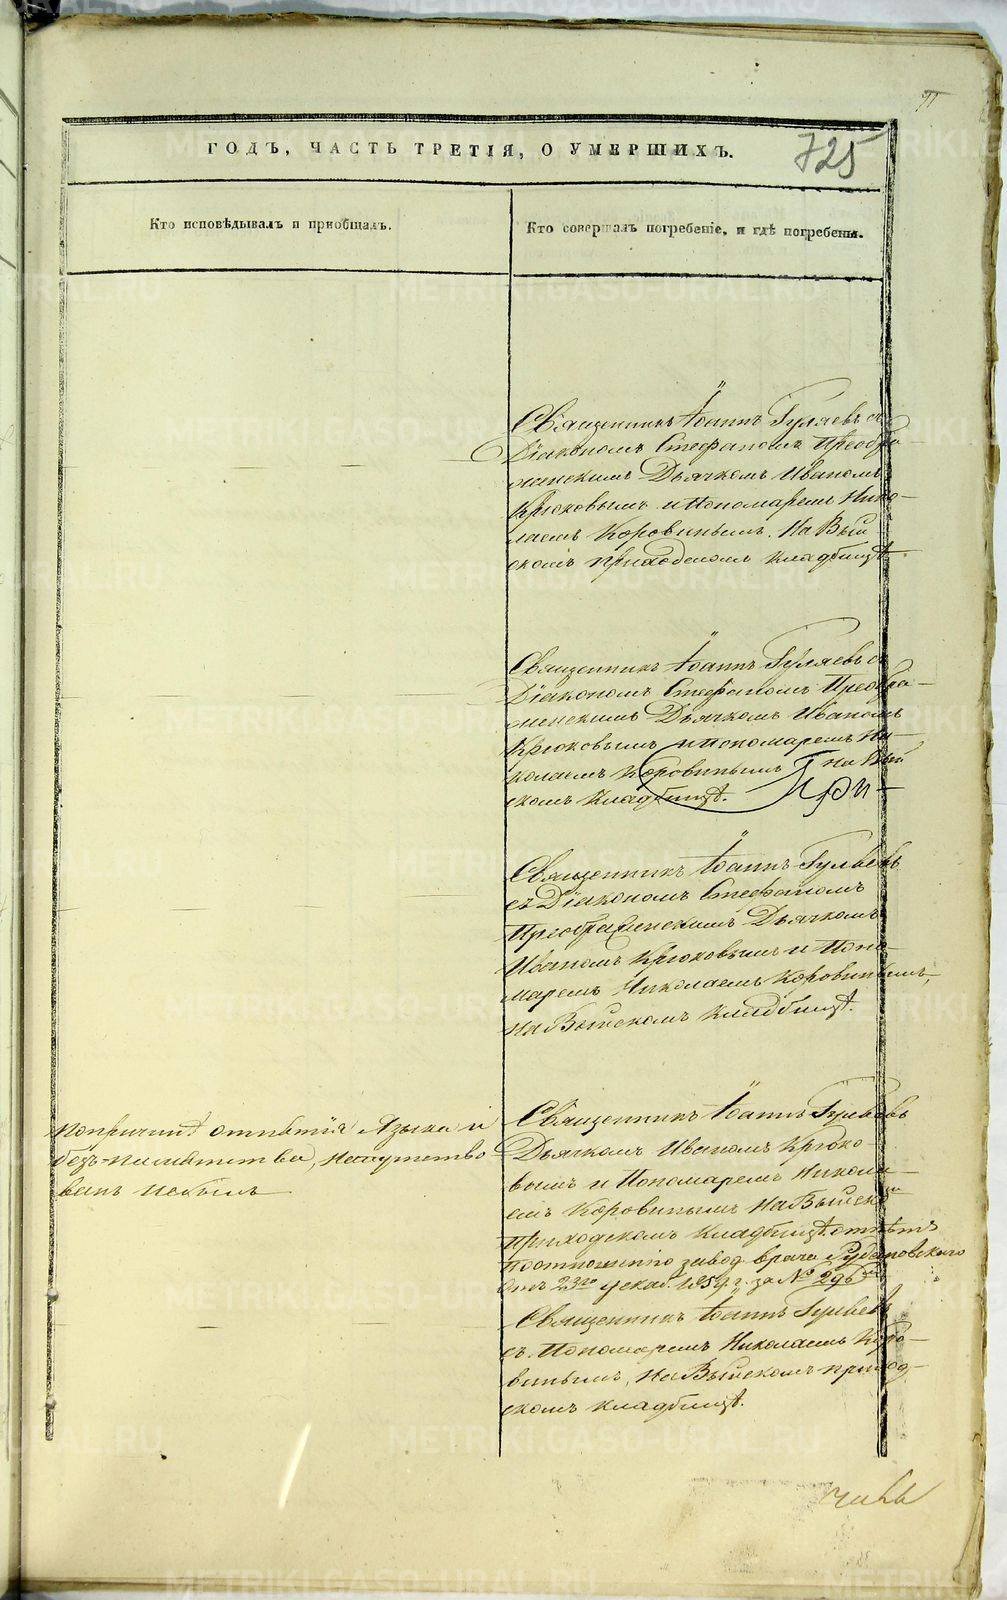 ГОДЪ, ЧАСТЬ ТРЕТІЯ, О УМЕРШИХЪ.
725
Кто исповѣдывалъ и пріобщалъ.
Кто совершалъ погребеніе, и гдѣ погребены.
Священникъ Іоаннъ Гуляевъ съ
Діакономъ Стефаномъ Преобра-
женскимъ Дьячкомъ Иваномъ
Крюковымъ и Пономаремъ Нико-
лаемъ Коровинымъ. На Вый
скомъ приходскомъ кладбищѣ.
Священникъ Іоаннъ Гуляевъ съ
Діакономъ Стефаномъ Преобра-
женскимъ Дьячкомъ Иваномъ
Крюковымъ и Пономаремъ Ни-
колаемъ Коровинымъ на Вый
скомъ кладбищѣ.
При-
Священникъ Іоаннъ Гуляевъ
съ Діакономъ Стефаномъ
Преображенскимъ Дьячкомъ
Иваномъ Крюковымъ и Поно-
маремъ Николаемъ Коровинымъ,
на Выйскомъ кладбищѣ.
По причинѣ отнятія Языка и
безъ-памятства, напутство-
ванъ небылъ
Священникъ Іоаннъ Гуляевъ
Дьячкомъ Иваномъ Крюко-
вымъ и Пономаремъ Никола-
емъ Коровинымъ на Выйскомъ
приходскомъ кладбищѣ отпѣтъ
по отношенію завод. врача Рудановскаго
отъ 23го декаб. 1859 г. за № 296м
Священникъ Іоаннъ Гуляевъ
съ Пономаремъ Николаемъ Коро-
винымъ, на Выйскомъ приход-
скомъ кладбищѣ.
METRIKI.GASO-URAL.RU